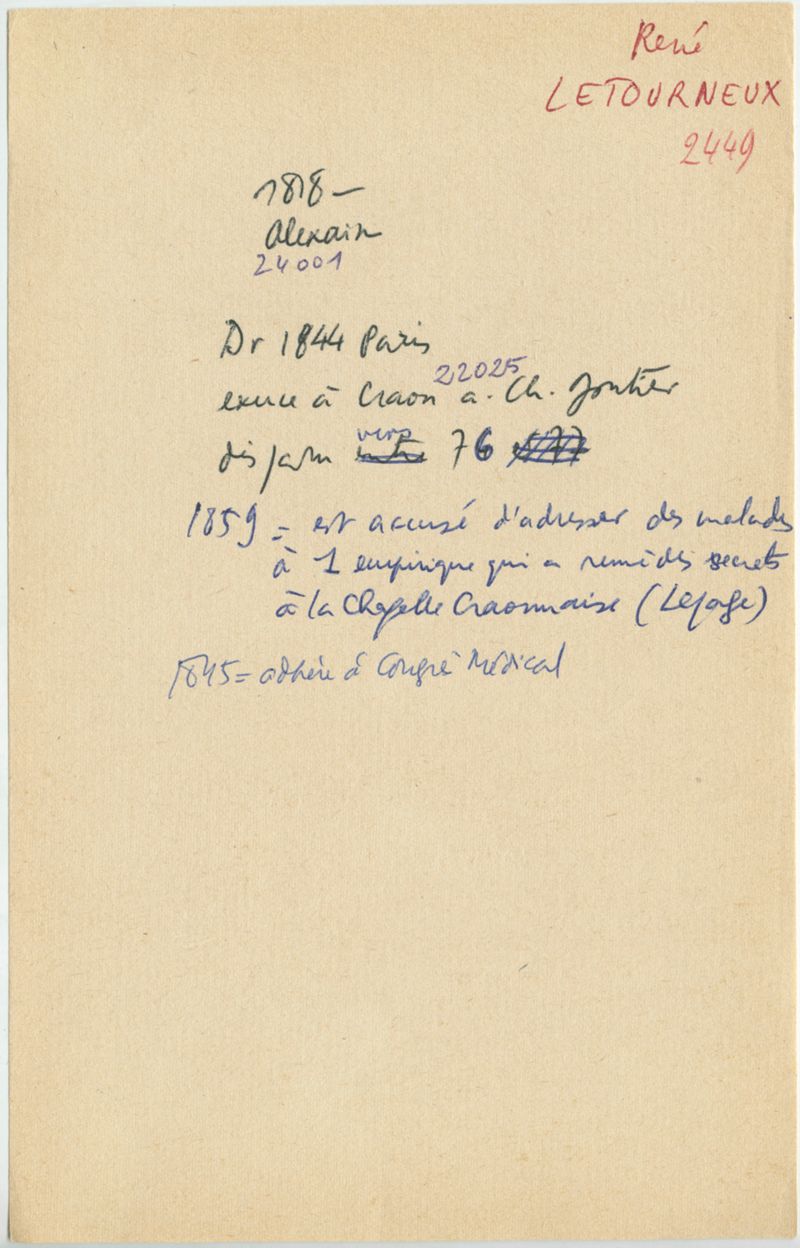 René
LETOURNEUX
2449
1818 –
Alexain
24001
Dr 1844 Paris
22025
exerce à Craon a. Ch. Gontier
vers
disparu entre 76 et 77
1859 = est accusé d'adresser des malades
à 1 empirique qui a remèdes secrets
à la Chapelle Craonnaise (Lepage)
1845 = adhère à Congrè Médical